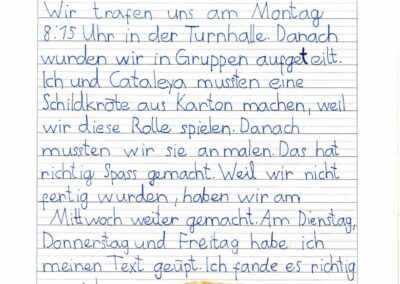 Wir trafen uns am Montag
8:15 Uhr in der Turnhalle. Danach
wurden wir in Gruppen aufgeteilt.
Ich und Cataleya mussten eine
Schildkröte aus Karton machen, weil
wir diese Rolle spielen. Danach
mussten wir sie anmalen. Das hat
richtig Spass gemacht. Weil wir nicht
fertig wurden, haben wir am
Mittwoch weiter gemacht. Am Dienstag,
Donnerstag und Freitag habe ich
meinen Text geüpt. Ich fande es richtig